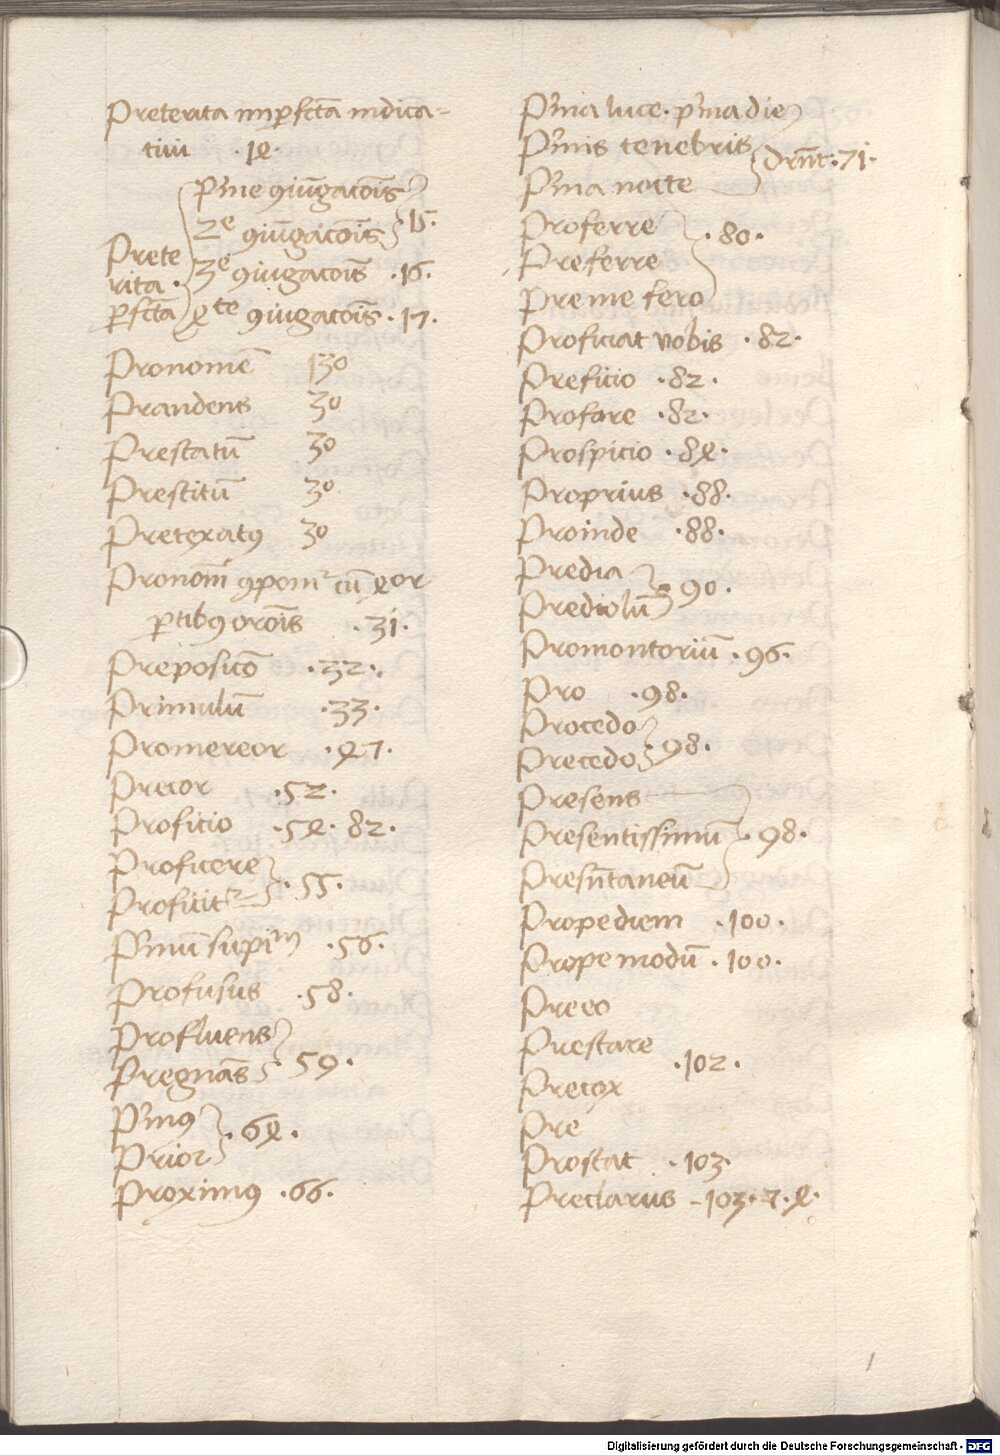 Preterita imp̱fctā indica-
tiui .14.
P'me ꝯiūgacoīs
2e ꝯiūgacoīs .15.
Prete
rita .
p̱fctā
3e ꝯiugacoīs .16.
4te ꝯiugacoīs .17.
Pronomē 130
Prandens 30
Prestatū 30
Prestitū 30
Pretextatꝰ 30
Pronoīa ꝯponr cū 4or
p̱tibꝰ oroīs .31.
Preposicō .32.
Primulū .33.
Promereor .47.
Precor .52.
Proficio .54. 82.
Proficere
Proficitr .55.
P'mū supim .56.
Profusus .58.
Profluens
Pregnās 59.
P'mꝰ
Prior .64.
Proximꝰ .66.
P'ma luce. p'ma die
P'mis tenebris
P'ma nocte
Dr̄nt .71.
Proferre
Preferre .80.
Pre me fero
Proficiat vobis .82.
Preficio .82.
Profare .82.
Prospicio .84.
Proprius .88.
Proinde .88.
Predia
Prediolū 90.
Promontoriū .96.
Pro .98.
Procedo
Precedo 98.
Presens
Presentissimū .98.
Presn̄taneū
Propediem .100.
Prope modū .100.
Preeo
Prestare
.102.
Precox
Pre
Prostat .103.
Preclarus -103.7.4.
Digitalisierung gefördert durch die Deutsche Forschungsgemeinschaft - DFG